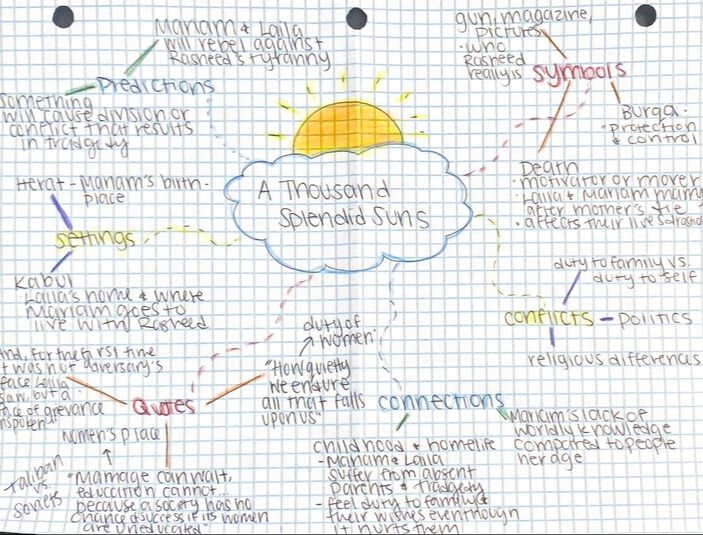 Mariam & Laila
will rebel against
Rasheed's tyranny
Predictions
something
will cause division or
conflict that results
in tradgety
Herat - Mariam's birth-
place
settings
Kabul
Laila's home & where
Mariam goes to
live with Rasheed
A Thousand
Splendid Suns
gun, magazine,
pictures
• who
Rasheed
really is
symbols
Burqa -
• protection
& control
Death
• motivator or mover
• Laila & Mariam marry
after mother's die
• affects their lives
duty to family vs.
duty to self
conflicts - politics
religious differences
and, for the first time
it was not adversary's
face Laila
saw, but a
face of grevance
unspoken
Quotes
duty of
women
"How quietly
we endure
all that falls
upon us"
women's place
Taliban
vs.
soviets
"Marriage can wait,
education cannot...
because a society has no
chance of success if its women
are uneducated"
connections
Mariam's lack of
worldly knowledge
compared to people
her age
childhood & homelife
- Mariam & Laila
suffer from absent
parents & tradgety
- feel duty to family &
their wishes even though
it hurts them